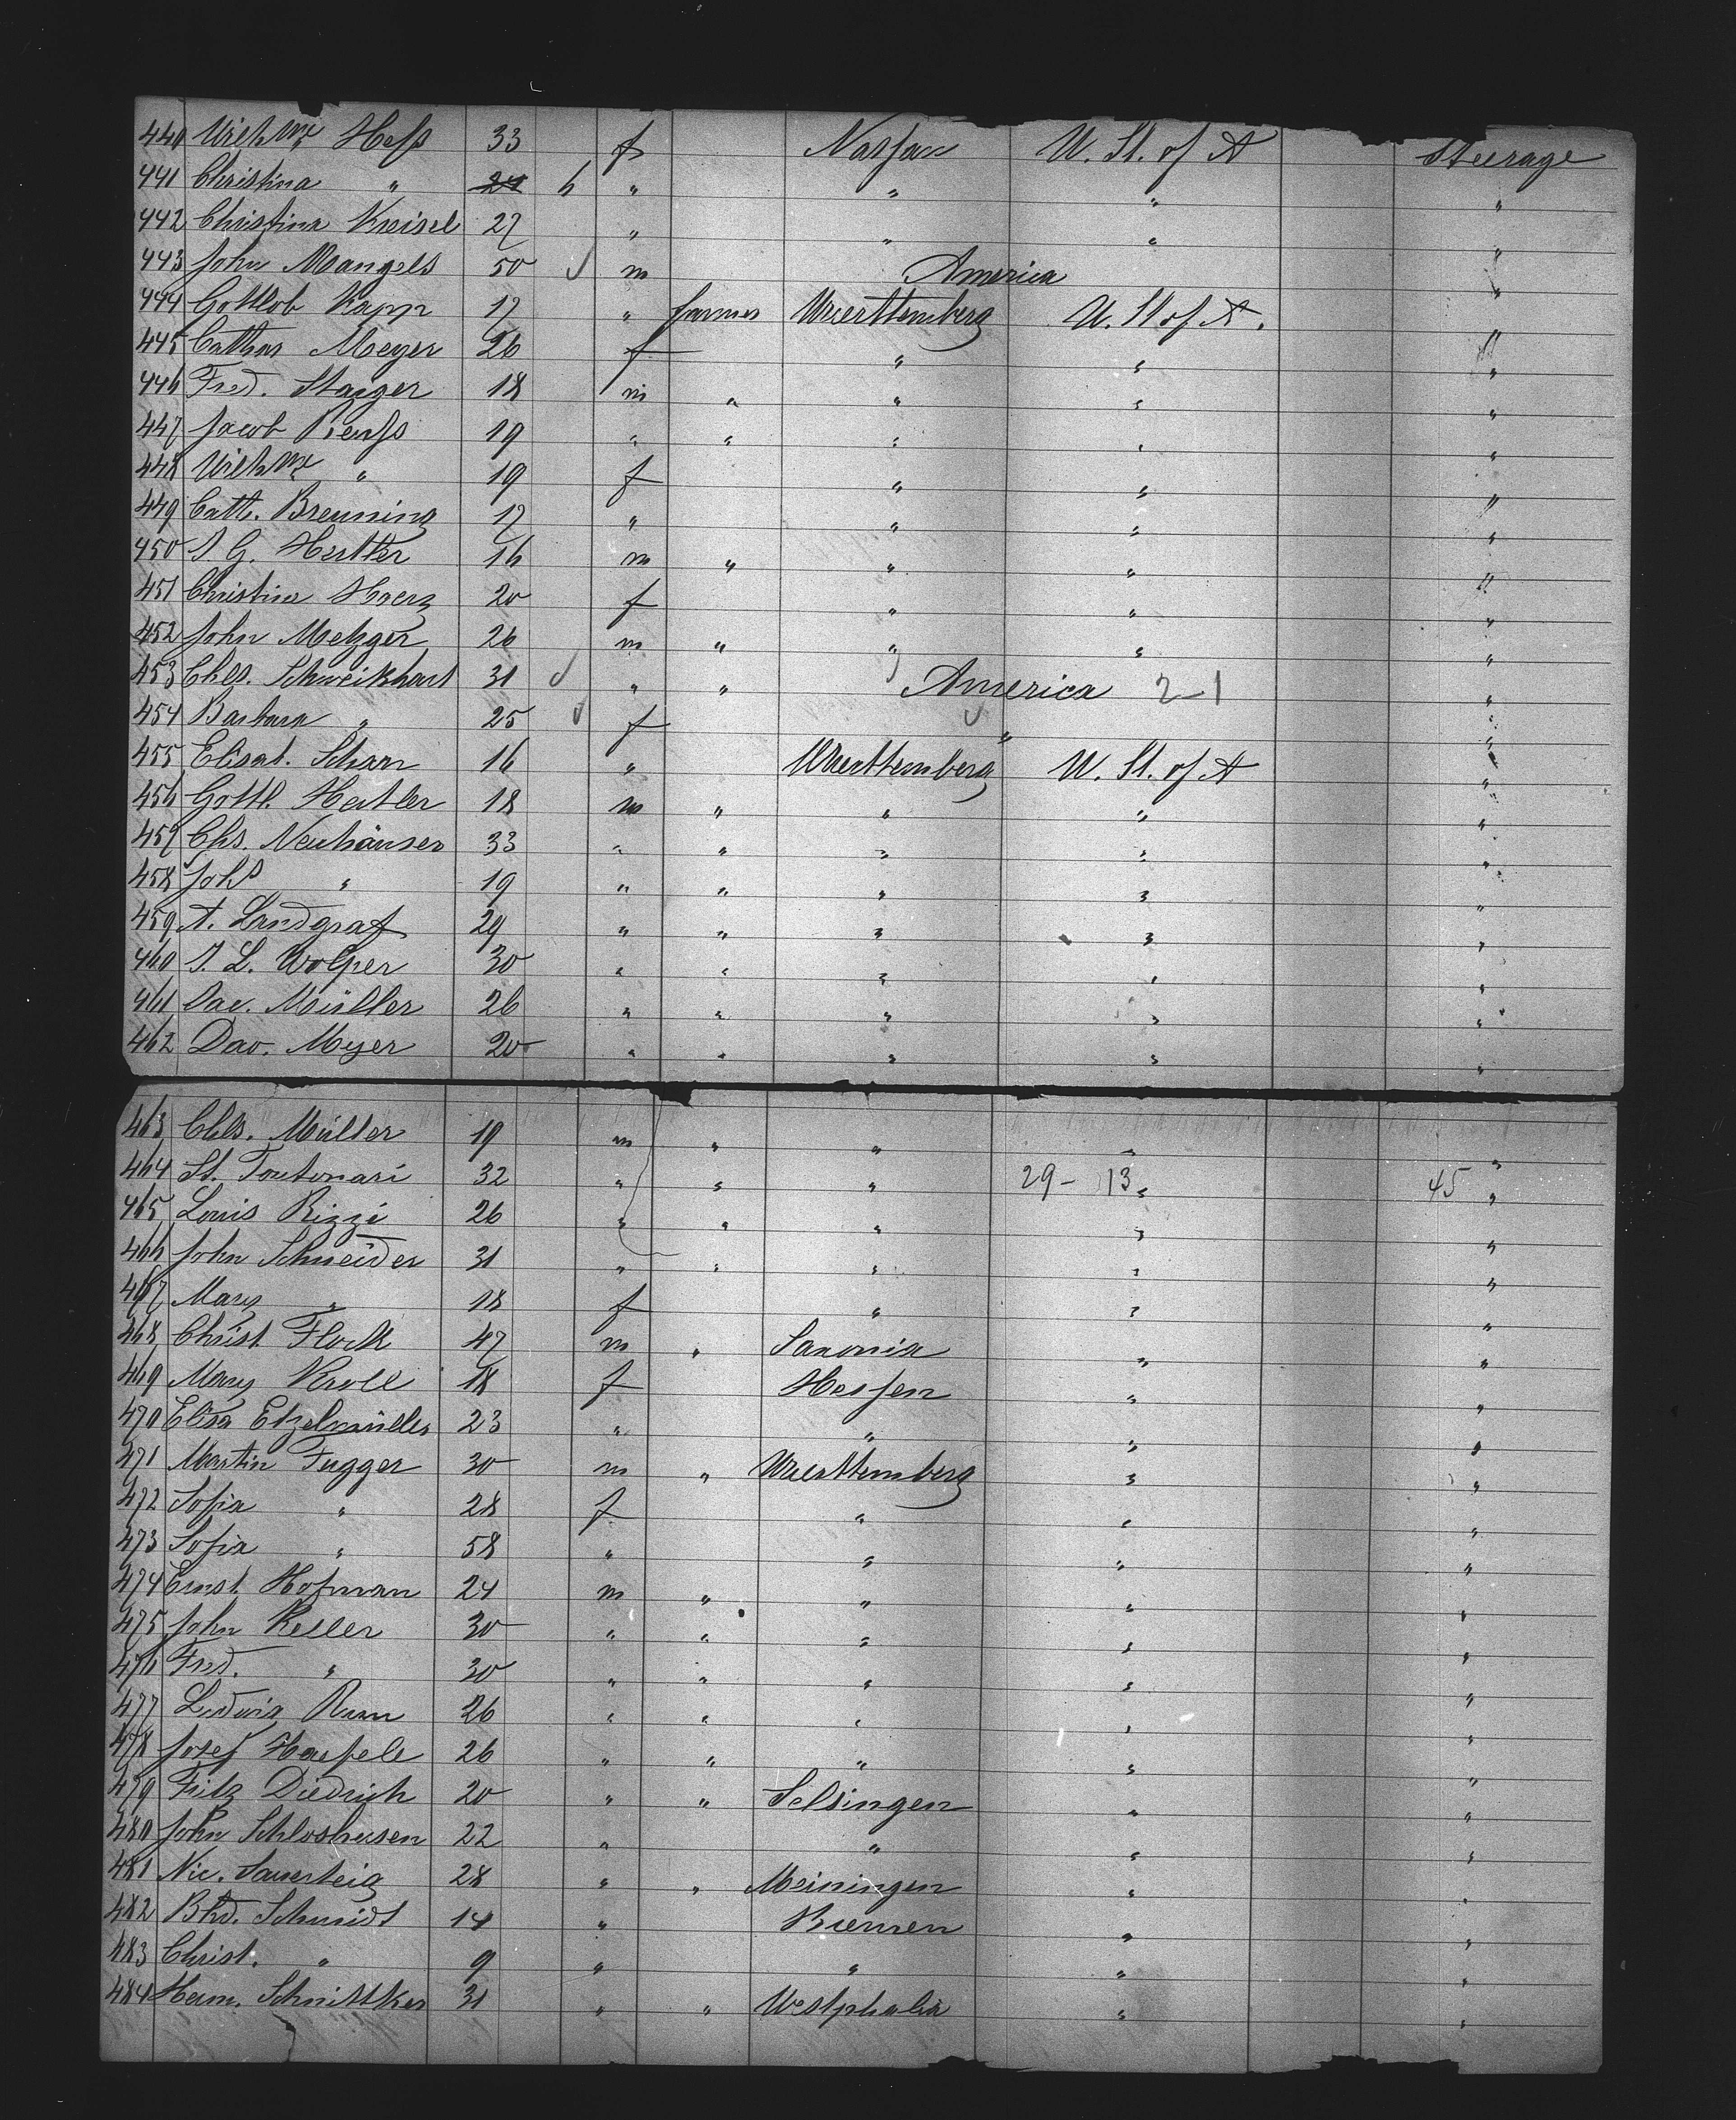 440 Wilh^me Hess 33 f Nassau U. St. of A Steerage
441 Christina " 24 6 " " " "
442 Christina Kreisel 27 " " " "
443 John Mangels 50 m America "
444 Gottlob Kapp 17 " farmer Wuerttemberg U. St of A. "
445 Cathar Meyer 26 f " " "
446 Fred. Staiger 18 m " " " "
447 Jacob Renss 19 " " " " "
448 Wilh^me " 19 f " " "
449 Cath. Breuning 17 " " " "
450 J. G. Hertter 16 m " " " "
451 Christina Haerz 20 f " " "
452 John Metzger 26 m " " " "
453 Chls. Schweikhart 31 " " America 2-1 "
454 Barbara " 25 f " "
455 Elisab. Scharr 16 " Wuerttemberg U. St. of A "
456 Gottl. Hertler 18 m " " " "
457 Chs. Neuhäuser 33 " " " " "
458 Joh^s " 19 " " " " "
459 A. Landgraf 29 " " " " "
460 J. L. Wolper 30 " " " " "
461 Jac. Müller 26 " " " " "
462 Dav. Meyer 20 " " " " "
463 Chls. Müller 19 m " " " "
464 St. Toutonari 32 " " " 29- 13 " 45 "
465 Louis Rizzi 26 " " " " "
466 John Schneider 31 " " " " "
467 Mary " 18 f " " "
468 Christ. Flock 47 m " Saxonia " "
469 Mary Kroll 18 f Hessen " "
470 Elisa Etzelmüller 23 " " " "
471 Martin Fugger 30 m " Wuerttemberg " "
472 Sofia " 28 f " " "
473 Sofia " 58 " " " "
474 Ernst Hofman 24 m " " " "
475 John Keller 30 " " " " "
476 Fred. " 30 " " " " "
477 Ludwig 26 " " " " "
478 Josef Haefele 26 " " " " "
479 Fritz Diedrich 20 " " Selsingen " "
480 John Schloshusen 22 " " " "
481 Nic. Sauerteig 28 " " Meiningen " "
482 Bhd. Schmidt 14 " Bremen " "
483 Christ. " 9 " " " "
484 Herm. Schnittker 31 " " Westphalia " "